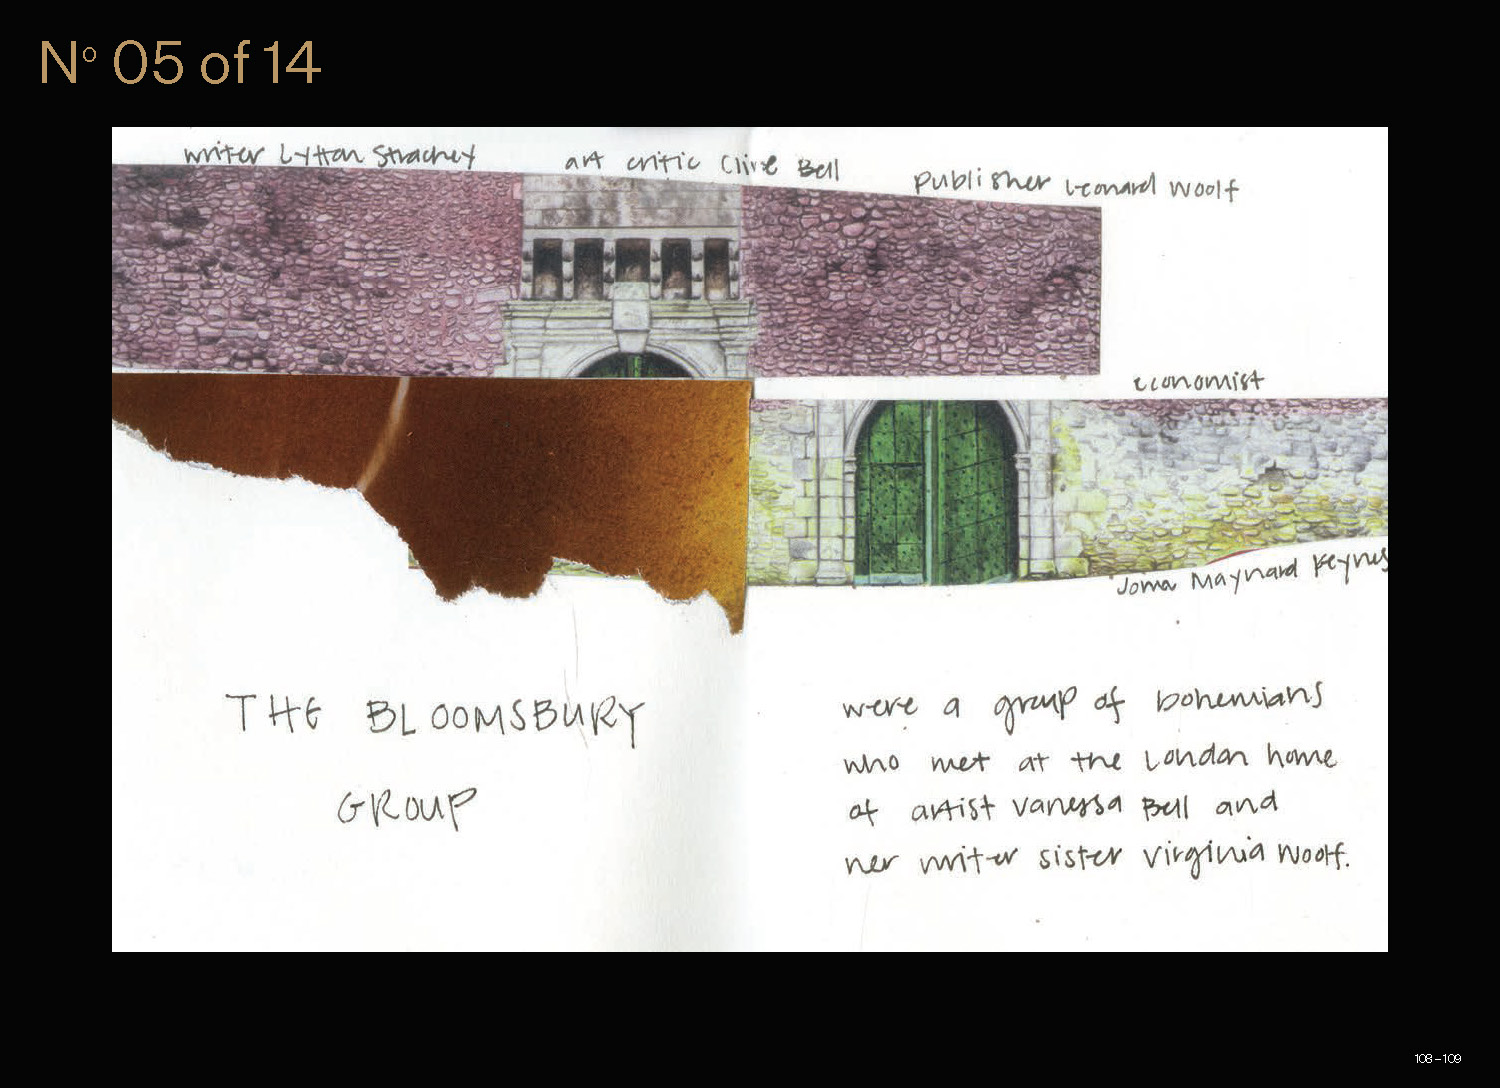 Nº 05 of 14
writer Lytton Strachey
art critic Clive Bell
publisher Leonard Woolf
economist
Maynard Keynes
THE BLOOMSBURY
GROUP
were a group of bohemians
who met at the London home
of artist Vanessa Bell and
her writer sister Virginia Woolf.
108–109